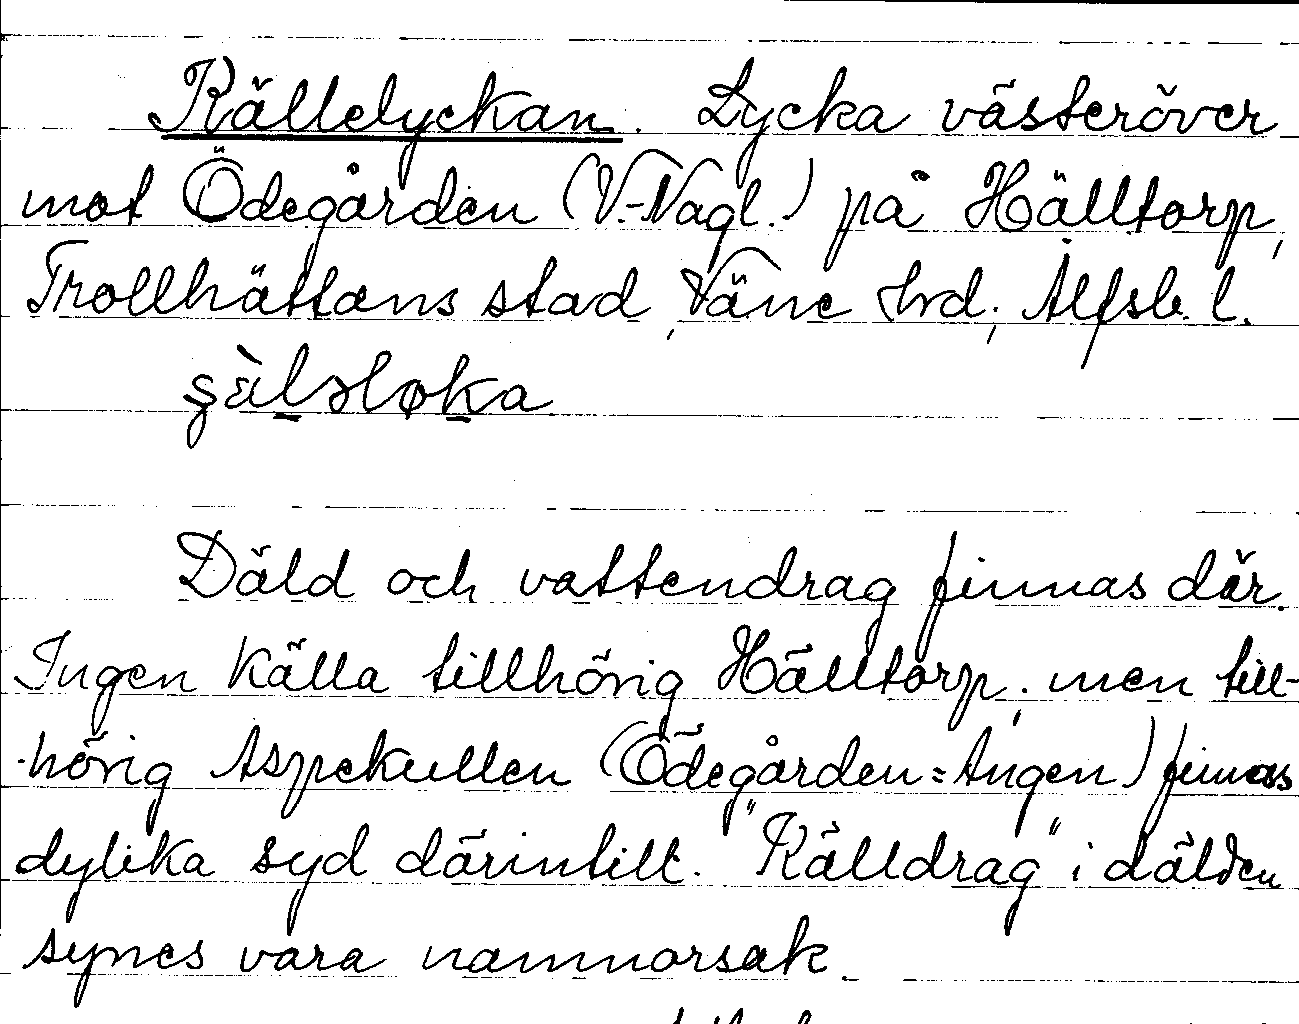 Källelyckan. Lycka västeröver
mot Ödegården (V.-Nagl.) på Hälltorp,
Trollhättans stad, Väne hrd; Älfsb. l.
Däld och vattendrag finnas där.
Ingen källa tillhörig Hälltorp; men till-
hörig Aspekullen (Ödegården=Ängen) finnas
dylika syd därintill. "Källdrag" i dälden
synes vara namnorsak.